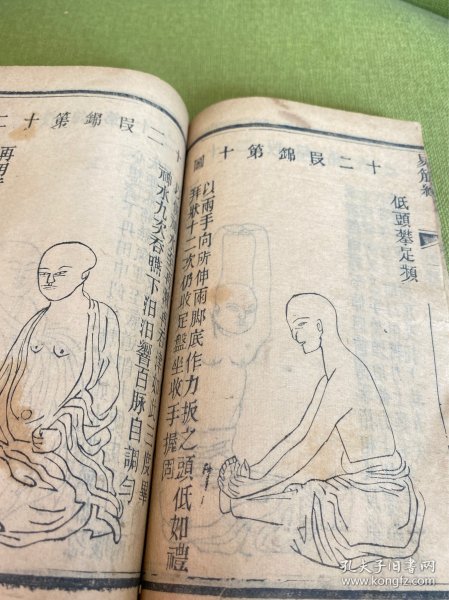 易筋經
十二段錦第十圖
低頭攀足頻
以兩手向所伸兩脚底作力扳之頭低如禮
拜狀十二次仍收足盤坐收手握固
十二段錦第十二
此三度畢
神水九次吞嚥下汩汩響百脉自調勻
孔夫子旧书网